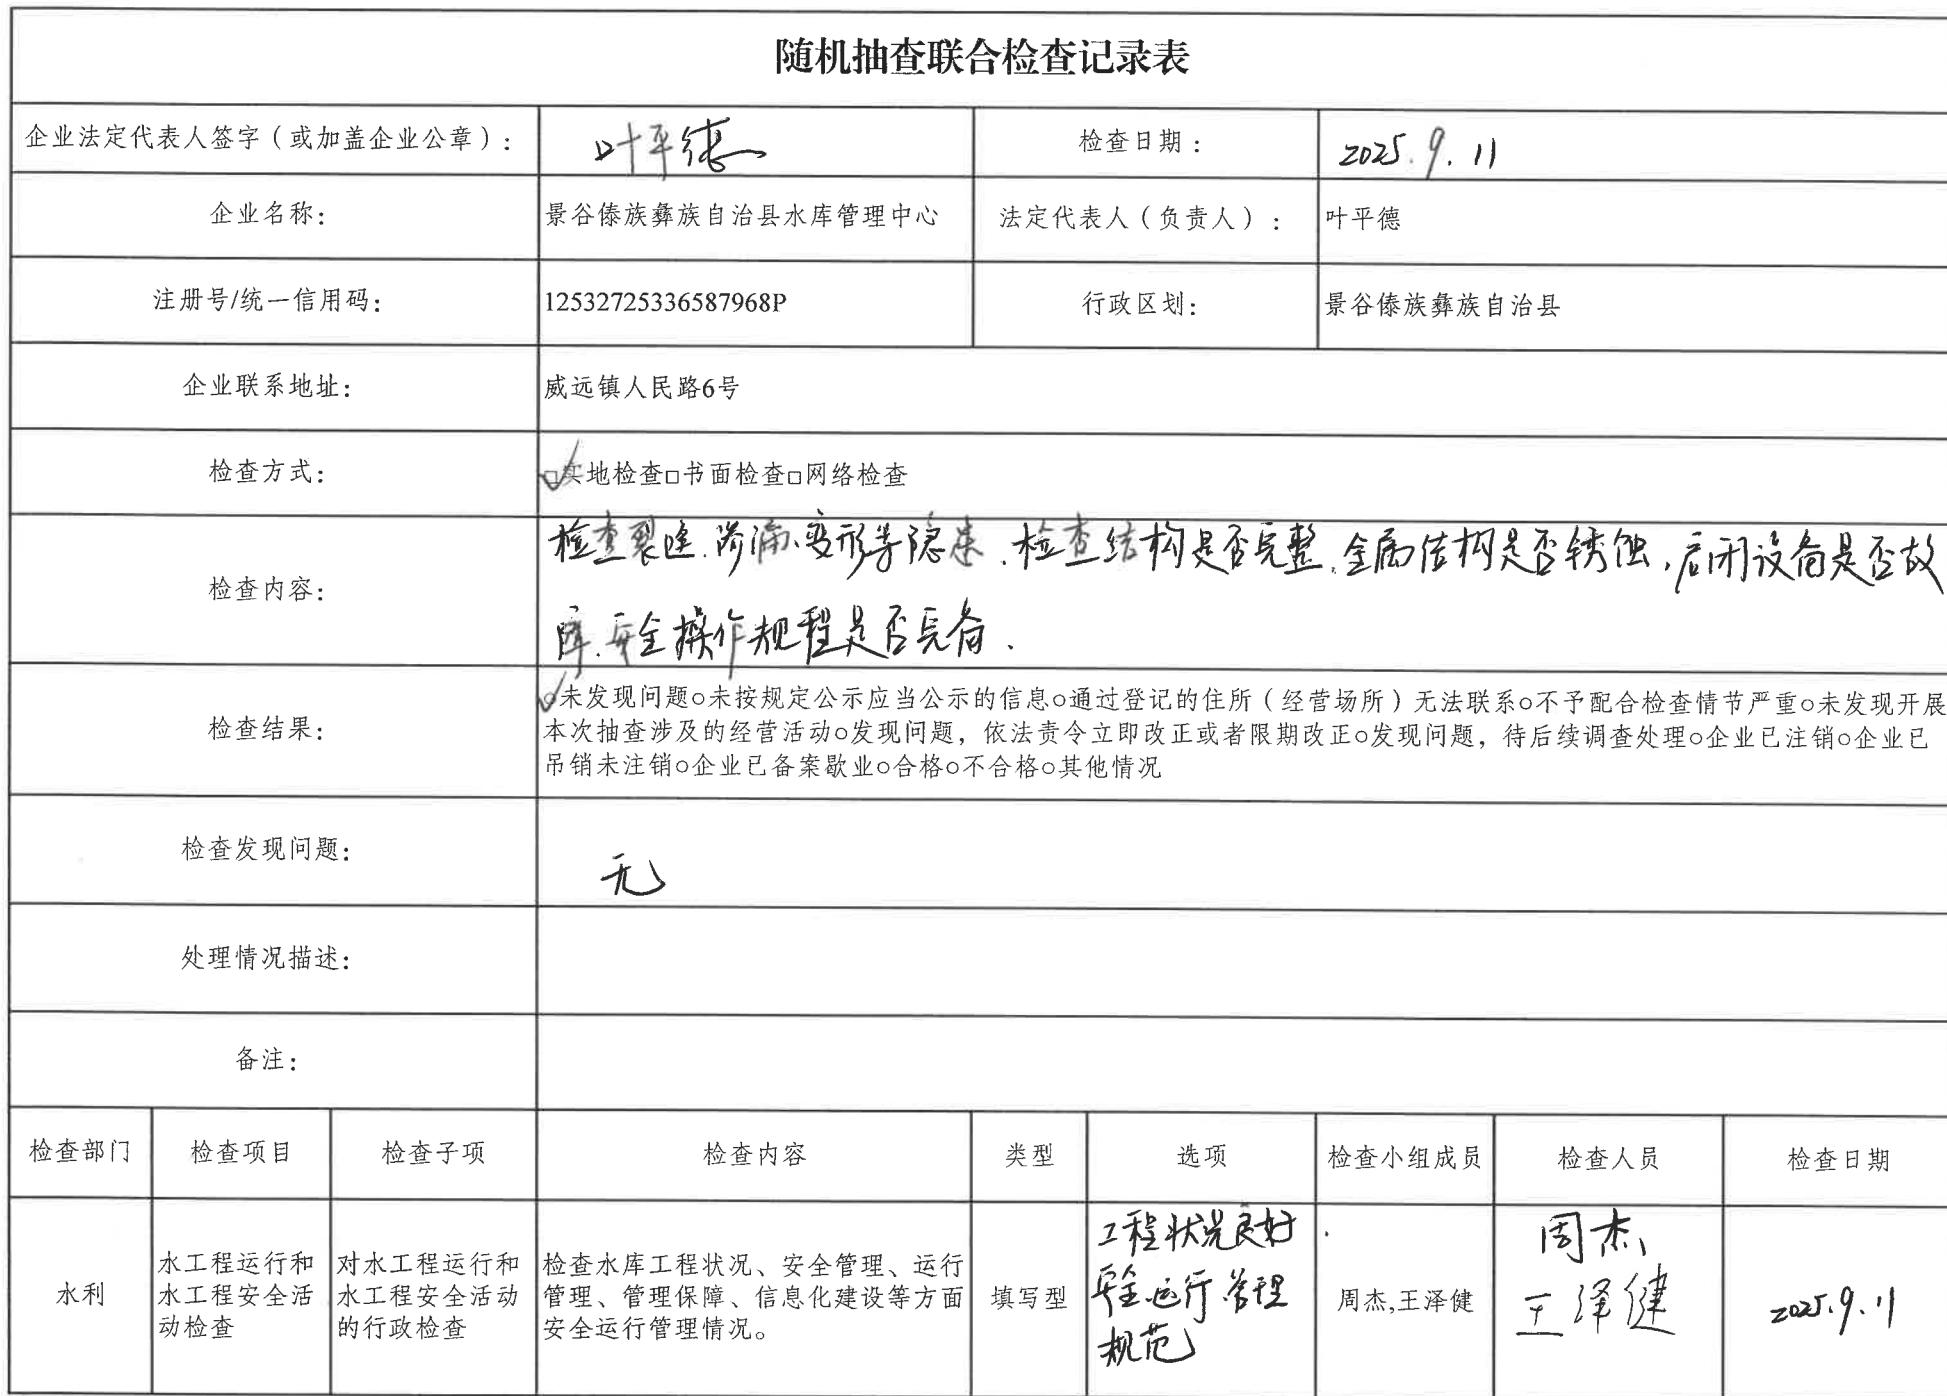 随机抽查联合检查记录表
企业法定代表人签字（或加盖企业公章）： 叶平德 检查日期： 2025.9.11
企业名称： 景谷傣族彝族自治县水库管理中心 法定代表人（负责人）： 叶平德
注册号/统一信用码： 12532725336587968P 行政区划： 景谷傣族彝族自治县
企业联系地址： 威远镇人民路6号
检查方式： ☑实地检查□书面检查□网络检查
检查内容：
检查裂缝、渗漏、变形等隐患、检查结构是否完整、金属结构是否锈蚀，启闭设备是否故
障、安全操作规程是否完备.
检查结果：
✓○未发现问题○未按规定公示应当公示的信息○通过登记的住所（经营场所）无法联系○不予配合检查情节严重○未发现开展
本次抽查涉及的经营活动○发现问题，依法责令立即改正或者限期改正○发现问题，待后续调查处理○企业已注销○企业已
吊销未注销○企业已备案歇业○合格○不合格○其他情况
检查发现问题： 无
处理情况描述：
备注：
检查部门 检查项目 检查子项 检查内容 类型 选项 检查小组成员 检查人员 检查日期
水利
水工程运行和
水工程安全活
动检查
对水工程运行和
水工程安全活动
的行政检查
检查水库工程状况、安全管理、运行
管理、管理保障、信息化建设等方面
安全运行管理情况。
填写型
工程状况良好
安全运行、管理
规范
周杰,王泽健
周杰、
王泽健
2025.9.11